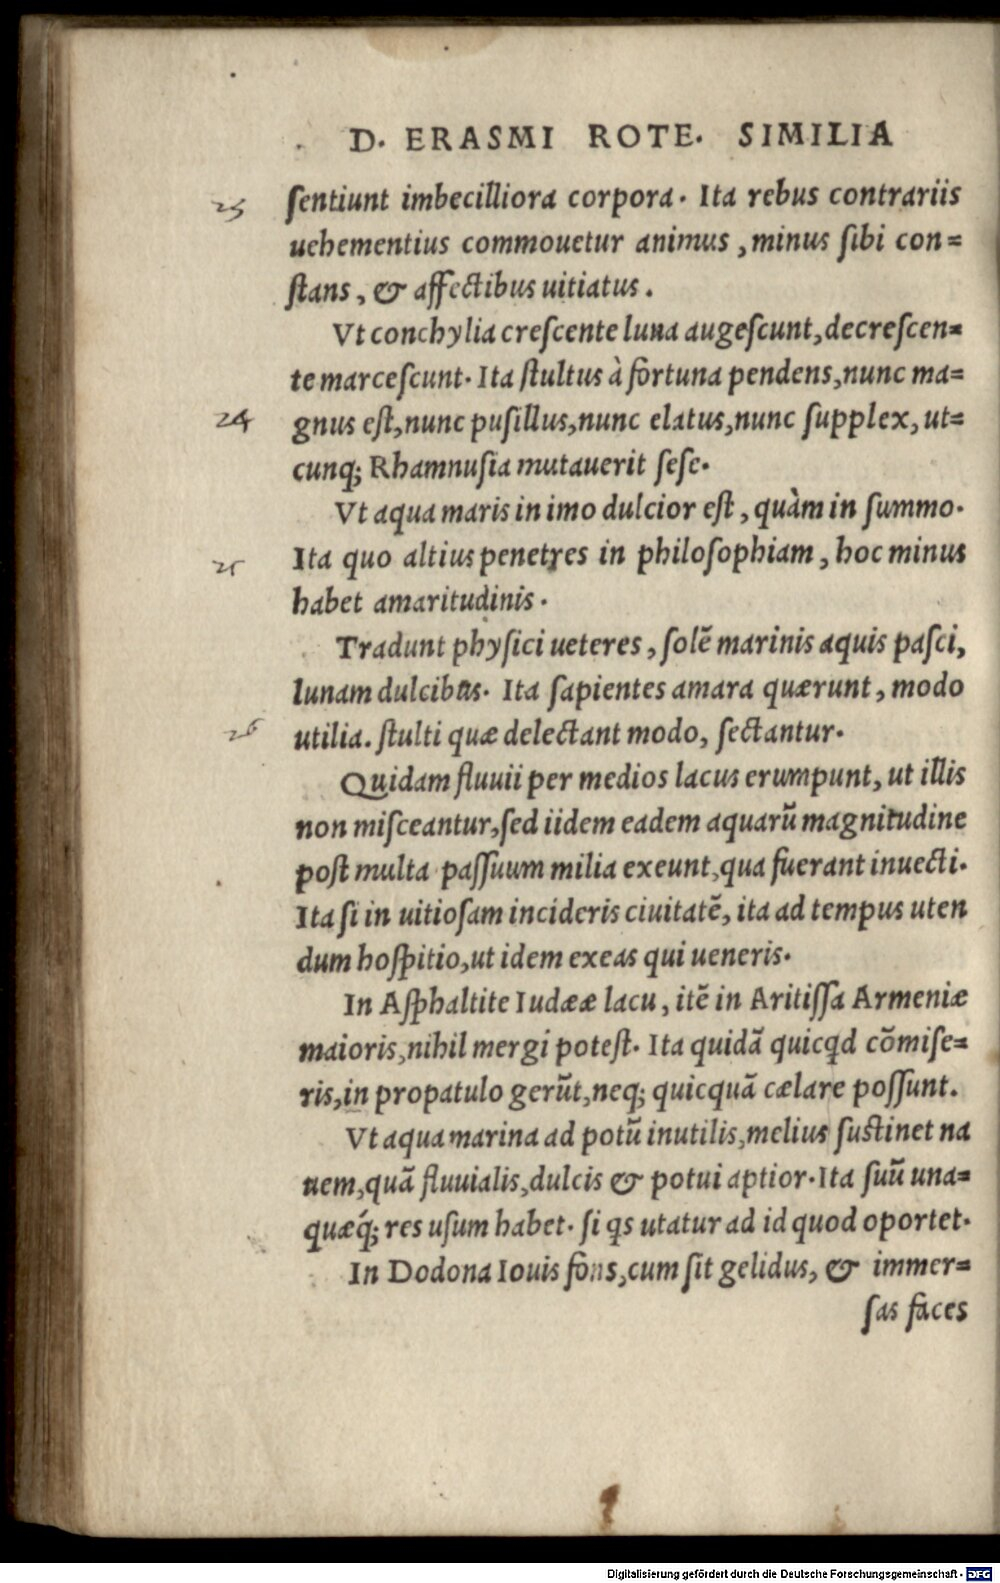 D. ERASMI ROTE. SIMILIA
ſentiunt imbecilliora corpora. Ita rebus contrariis
uehementius commouetur animus, minus ſibi con=
ſtans, & affectibus uitiatus.
Vt conchylia creſcente luna augeſcunt, decreſcen=
te marceſcunt. Ita ſtultus à fortuna pendens, nunc ma=
24 gnus eſt, nunc puſillus, nunc elatus, nunc ſupplex, ut=
cunq; Rhamnuſia mutauerit ſeſe.
Vt aqua maris in imo dulcior eſt, quàm in ſummo.
25 Ita quo altius penetres in philoſophiam, hoc minus
habet amaritudinis.
Tradunt phyſici ueteres, ſolē marinis aquis paſci,
lunam dulcibus. Ita ſapientes amara quærunt, modo
26 utilia. ſtulti quæ delectant modo, ſectantur.
Quidam fluuii per medios lacus erumpunt, ut illis
non miſceantur, ſed iidem eadem aquarū magnitudine
poſt multa paſſuum milia exeunt, qua fuerant inuecti.
Ita ſi in uitioſam incideris ciuitatē, ita ad tempus uten
dum hoſpitio, ut idem exeas qui ueneris.
In Aſphaltite Iudææ lacu, itē in Aritiſſa Armeniæ
maioris, nihil mergi poteſt. Ita quidā quicqd cōmiſe=
ris, in propatulo gerūt, neq; quicquā cælare poſſunt.
Vt aqua marina ad potū inutilis, melius ſuſtinet na
uem, quā fluuialis, dulcis & potui aptior. Ita ſuū una=
quæq́; res uſum habet. ſi qs utatur ad id quod oportet.
In Dodona Iouis fons, cum ſit gelidus, & immer=
ſas faces
Digitalisierung gefördert durch die Deutsche Forschungsgemeinschaft - DFG